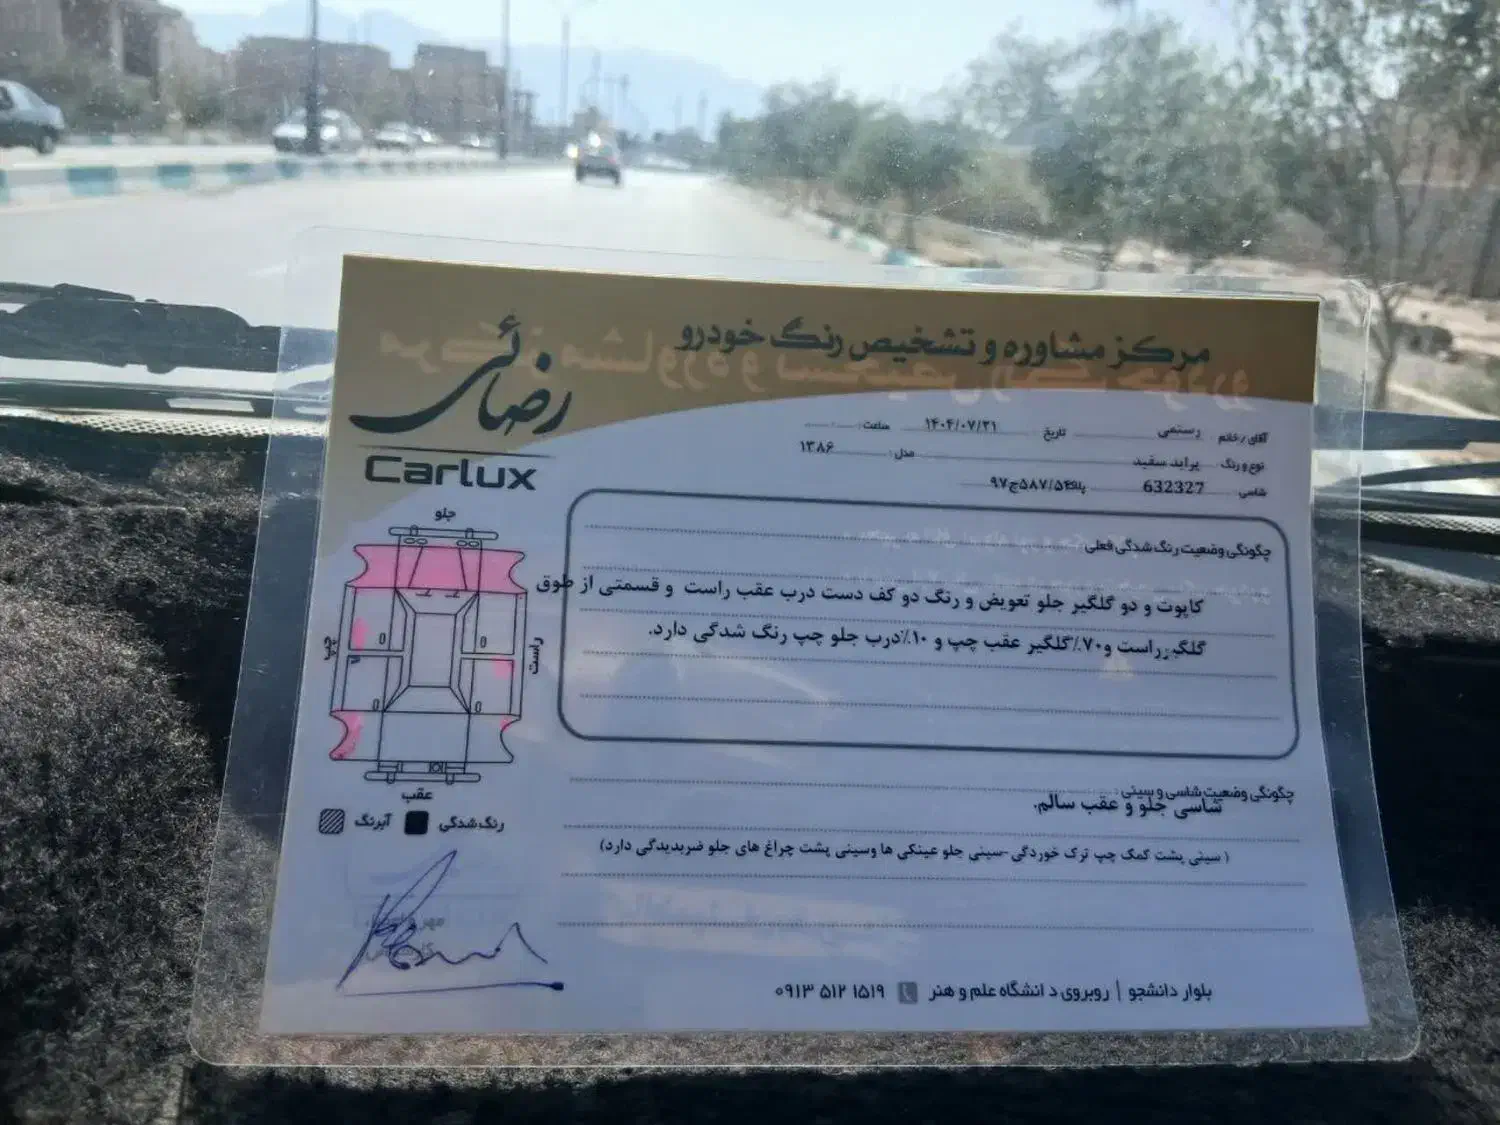 مرکز مشاوره و تشخیص رنگ خودرو
رضائی
Carlux
آقای / خانم رستمی تاریخ ۱۴۰۴/۰۷/۲۱ ساعت:
نوع و رنگ پراید سفید مدل: ۱۳۸۶
شاسی 632327 پلاک ۵۸۷/۵۴ج۹۷
چگونگی وضعیت رنگ شدگی فعلی:
کاپوت و دو گلگیر جلو تعویض و رنگ دو کف دست درب عقب راست و قسمتی از طوق
گلگیرراست و۷۰٪گلگیر عقب چپ و ۱۰٪درب جلو چپ رنگ شدگی دارد.
چگونگی وضعیت شاسی و سینی:
شاسی جلو و عقب سالم.
( سینی پشت کمک چپ ترک خوردگی-سینی جلو عینکی ها وسینی پشت چراغ های جلو ضربدیدگی دارد)
جلو
چپ
راست
عقب
رنگ شدگی
آبرنگ
بلوار دانشجو | روبروی دانشگاه علم و هنر ۰۹۱۳ ۵۱۲ ۱۵۱۹